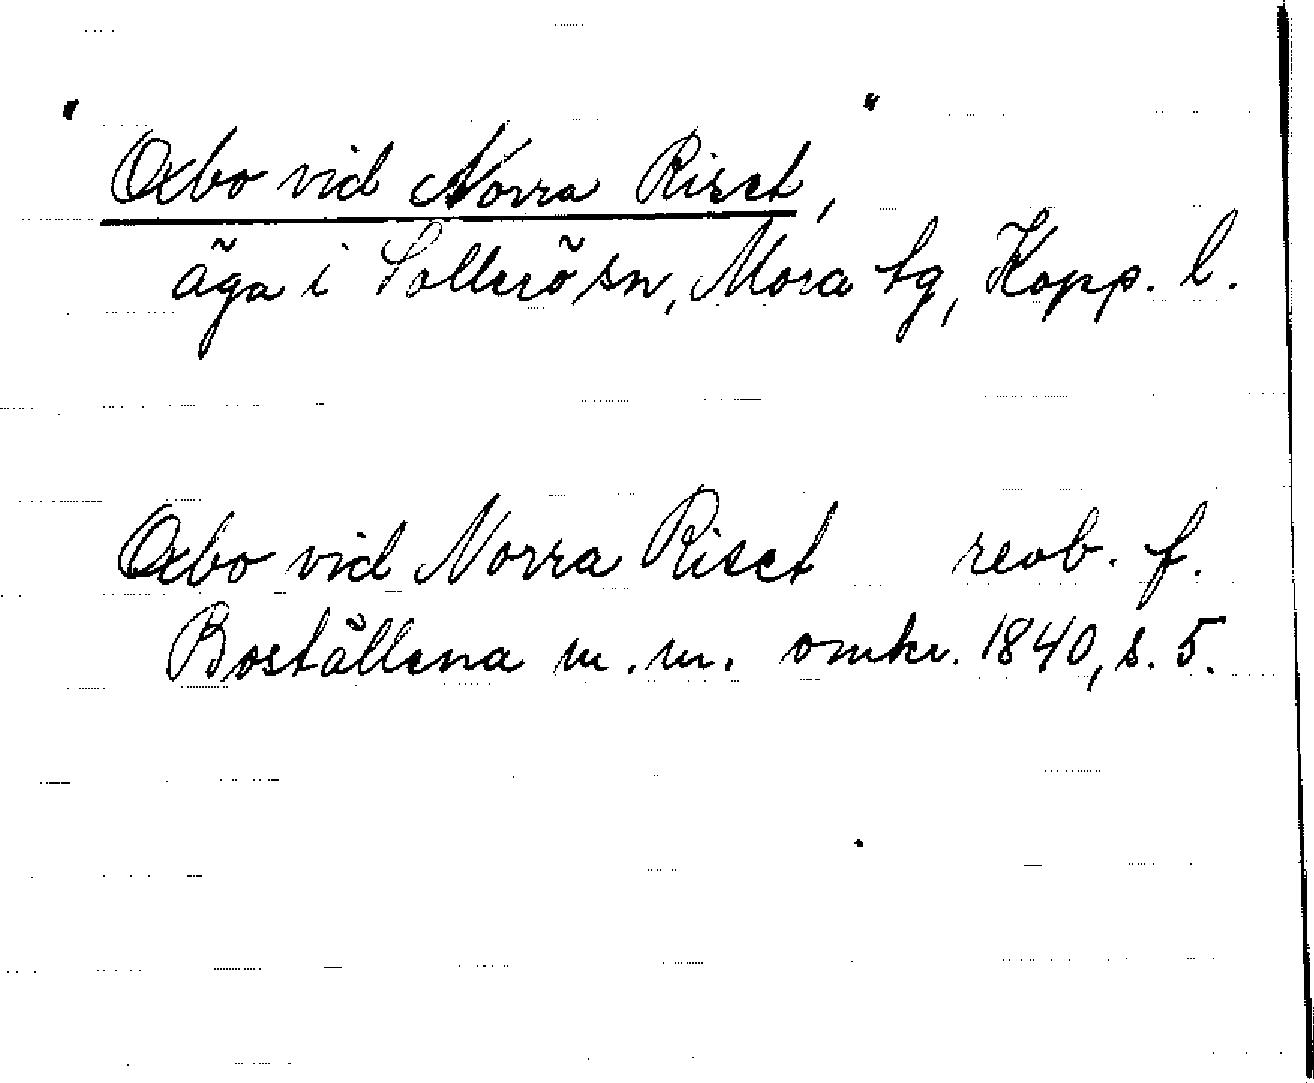 "Oxbo vid Norra Riset,"
äga i Sollerö sn, Mora tg, Kopp. l.
Oxbo vid Norra Riset reob. f.
Boställena m.m. omkr. 1840, s. 5.